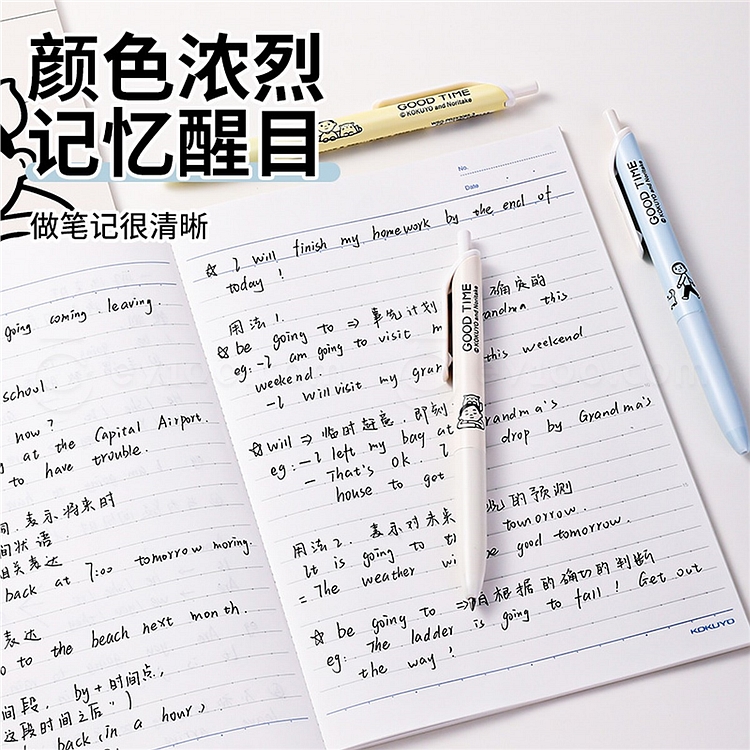 颜色浓烈
记忆醒目
做笔记很清晰
GOOD TIME
© KOKUYO and Noritake
GOOD TIME
© KOKUYO and Noritake
GOOD TIME
© KOKUYO and Noritake
No.
Date
☆ I will finish my homework by the end of
today!
用法1.
☆ be going to ⇒ 事先计划 确定的
eg: -I am going to visit m andma this
weekend.
-I will visit my gran this weekend
☆ will ⇒ 临时 即刻
eg: -I left my bag at randma's
- That's ok. I drop by Grandma's
house to get
用法2. 表示对未来 况的预测
It is going to tomorrow.
= The weather wi be good tomorrow.
☆ be going to ⇒有根据的确切的判断
eg: The ladder is going to fall! Get out
the way!
KOKUYO
going coming leaving.
school.
now?
at the Capital Airport.
to have trouble.
间. 表示将来时
间状语.
相关表达
back at 7:00 tomorrow moring.
表达
to the beach next month.
间段, by + 时间点,
这段时间之后")
back in a hour,